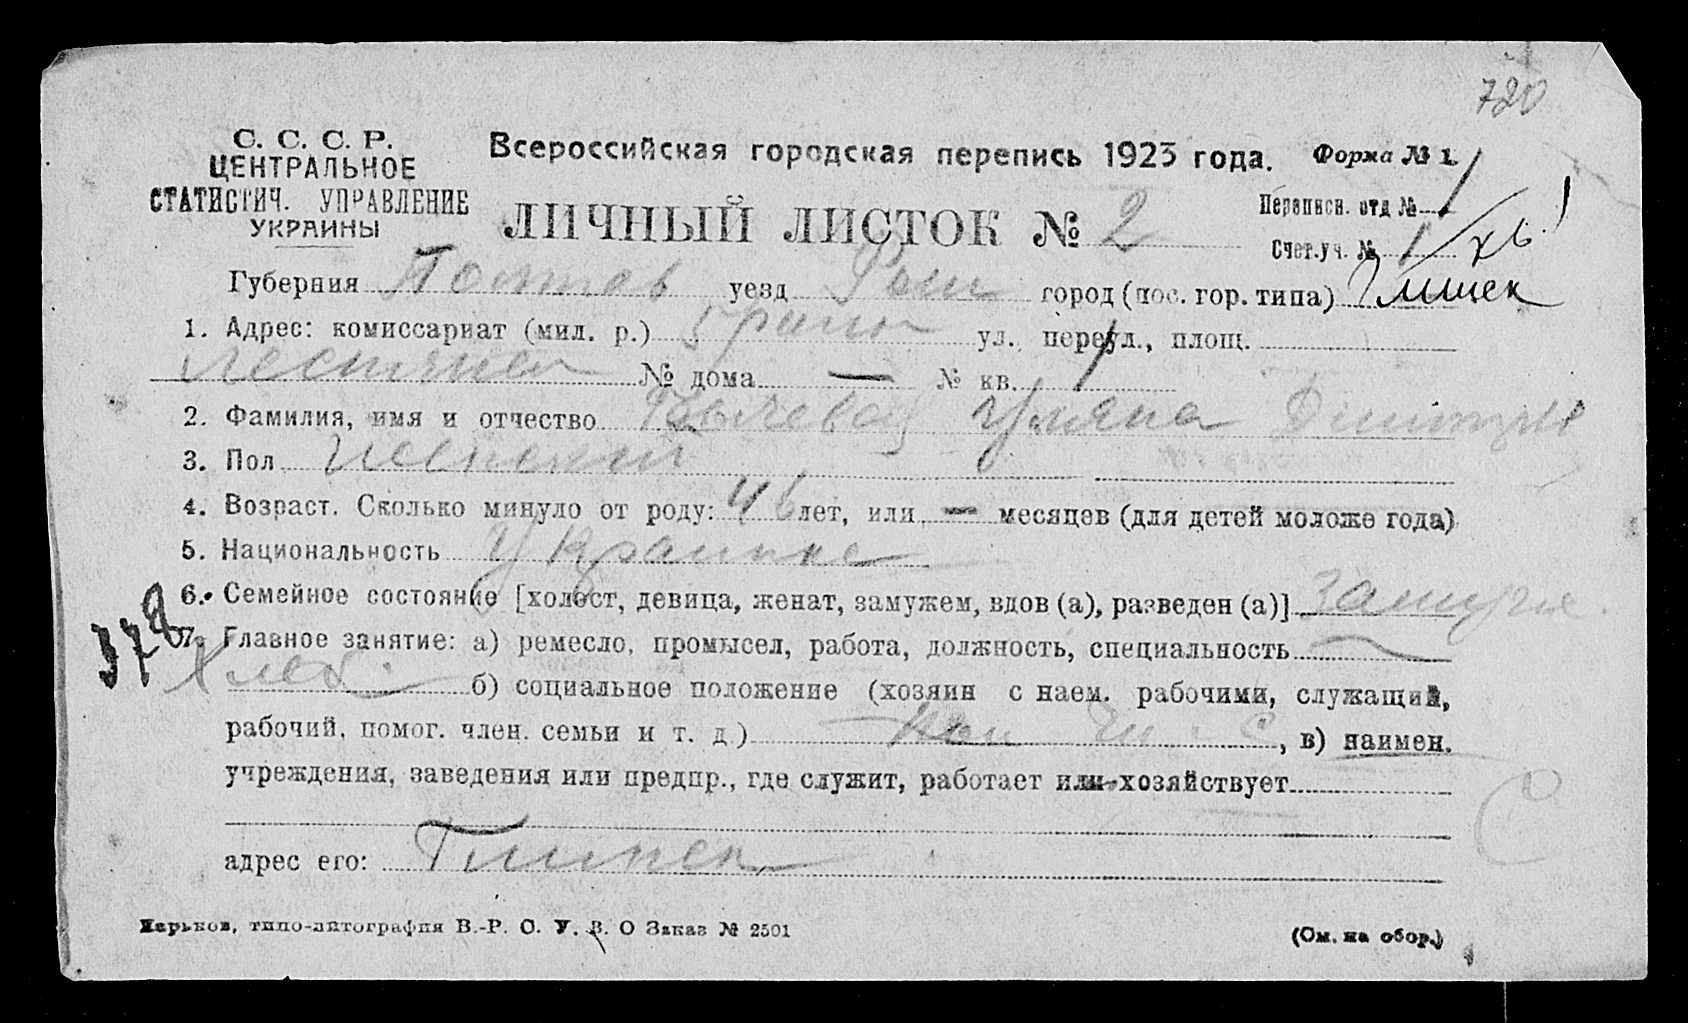 720
С. С. С. Р.
ЦЕНТРАЛЬНОЕ
СТАТИСТИЧ. УПРАВЛЕНИЕ
УКРАИНЫ
Всероссийская городская перепись 1923 года.
Форма № 1.
ЛИЧНЫЙ ЛИСТОК № 2
Переписн. отд № 1
Счет.уч. № 1
Губерния Полтав уезд Ром город (пос. гор. типа) Глинск
1. Адрес: комиссариат (мил. р.) 5 район ул., переул., площ.
№ дома — № кв. 1
2. Фамилия, имя и отчество Уляна Дмитр
3. Пол Женский
4. Возраст. Сколько минуло от роду: 46 лет, или — месяцев (для детей моложе года)
5. Национальность Украинка
6. Семейное состояние [холост, девица, женат, замужем, вдов (а), разведен (а)] Замужн.
7. Главное занятие: а) ремесло, промысел, работа, должность, специальность
Хлеб. б) социальное положение (хозяин с наем. рабочими, служащий,
рабочий, помог. член. семьи и т. д.) , в) наимен.
учреждения, заведения или предпр., где служит, работает или хозяйствует
С
адрес его: Глинск
378
Харьков, типо-литография В.-Р. С. У. В. О Заказ № 2501
(См. на обор.)